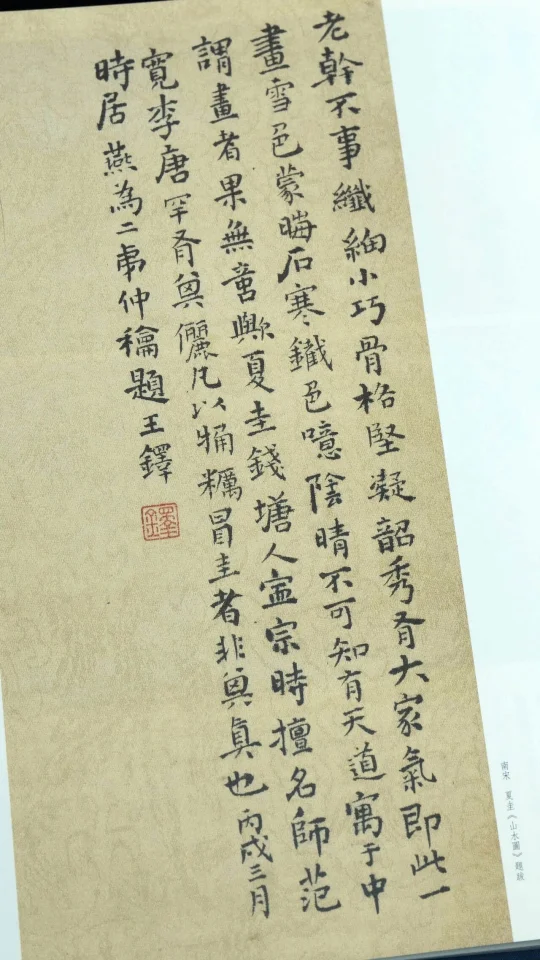 老幹不事纖細小巧骨格堅凝韶秀有大家氣即此一
畫雪色蒙晦石寒鐵色噫陰晴不可知有天道寓于中
謂畫者果無意歟夏圭錢塘人寧宗時擅名師范
寬李唐罕有其儷凡以粗糲冒圭者非其真也丙戌三月
時居燕為二弟仲龠題王鐸
鐸
南宋 夏圭《山水圖》題跋